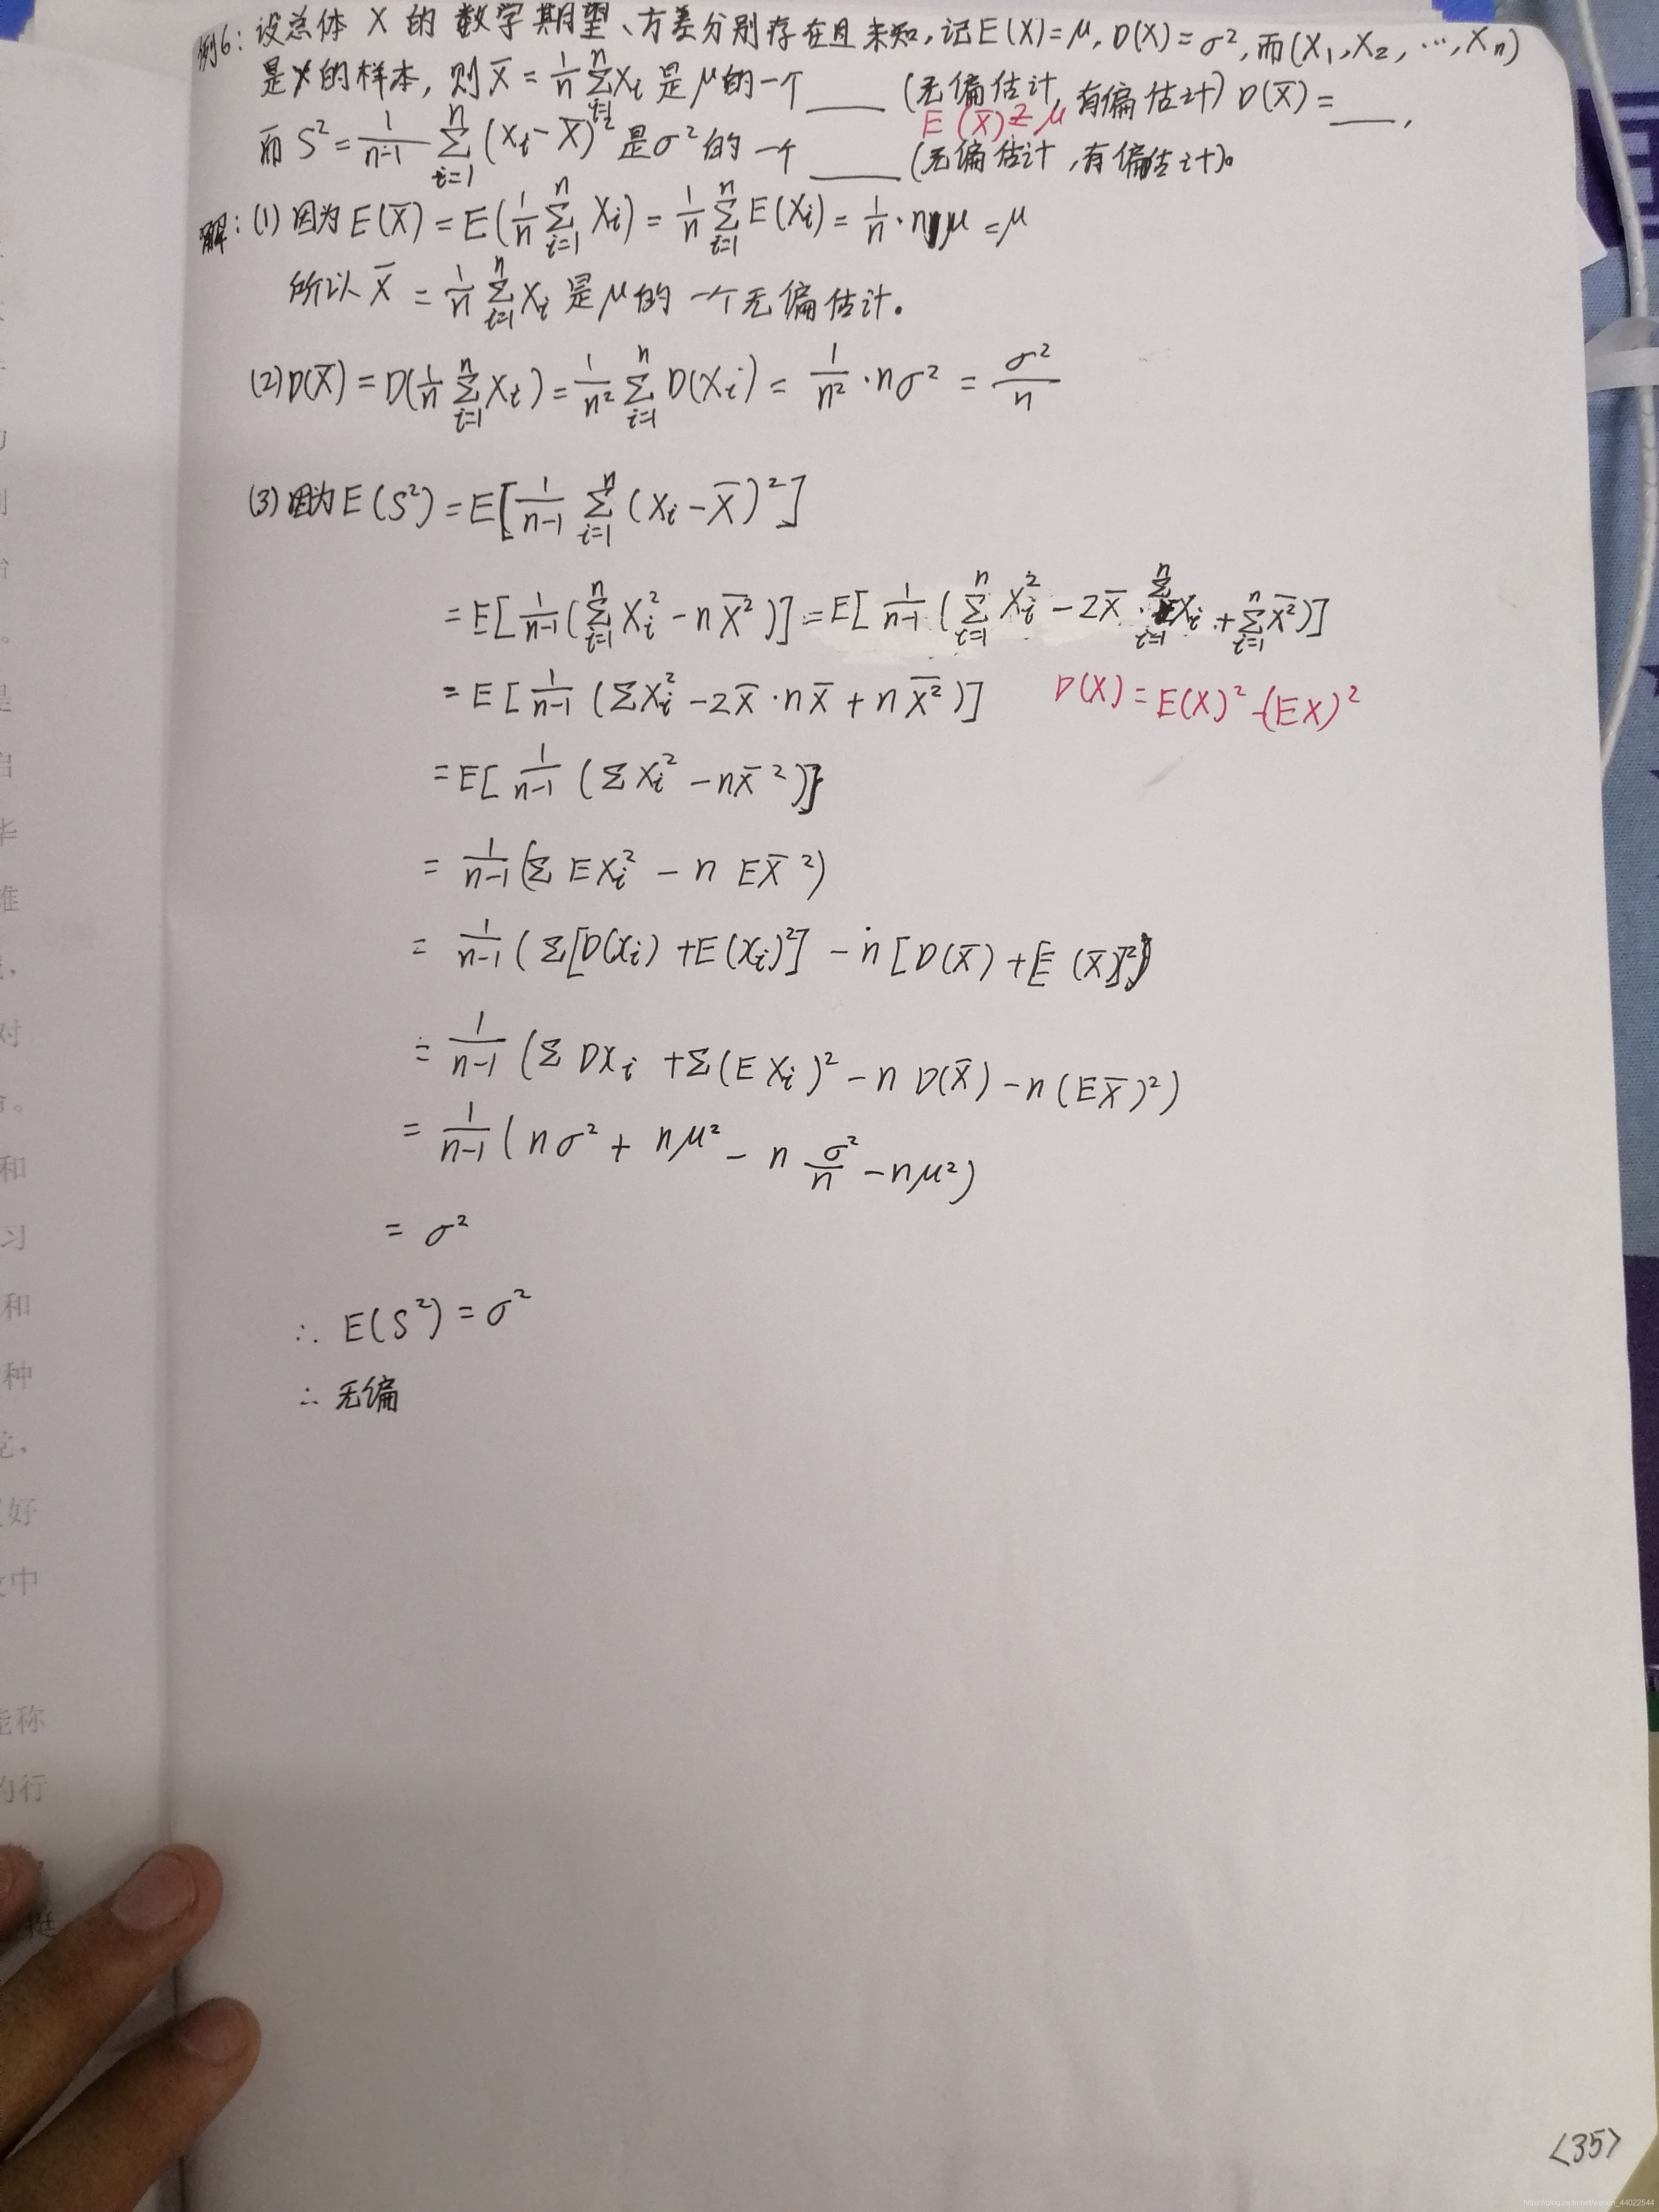 例6：设总体 X 的 数学期望、方差分别存在且未知，记E(X)=μ, D(X)=σ², 而(X₁,X₂,…,Xₙ)
是X的样本，则 X̄ = 1/n Σᵢ₌₁ⁿ Xᵢ 是μ的一个 ____ (无偏估计,有偏估计) D(X̄)= ____,
E(X̄)≟μ
而 S² = 1/(n-1) Σᵢ₌₁ⁿ (Xᵢ-X̄)² 是σ²的 一个 ____ (无偏估计,有偏估计)。
解：(1) 因为 E(X̄) = E(1/n Σᵢ₌₁ⁿ Xᵢ) = 1/n Σᵢ₌₁ⁿ E(Xᵢ) = 1/n · nμ = μ
所以 X̄ = 1/n Σᵢ₌₁ⁿ Xᵢ 是μ的 一个无偏估计。
(2) D(X̄) = D(1/n Σᵢ₌₁ⁿ Xᵢ) = 1/n² Σᵢ₌₁ⁿ D(Xᵢ) = 1/n² · nσ² = σ²/n
(3) 因为 E(S²) = E[1/(n-1) Σᵢ₌₁ⁿ (Xᵢ-X̄)²]
= E[1/(n-1) (Σᵢ₌₁ⁿ Xᵢ² - nX̄²)] = E[1/(n-1) (Σᵢ₌₁ⁿ Xᵢ² - 2X̄ · Σᵢ₌₁ⁿ Xᵢ + Σᵢ₌₁ⁿ X̄²)]
= E[1/(n-1) (ΣXᵢ² - 2X̄ · nX̄ + nX̄²)] D(X) = E(X)² - (EX)²
= E[1/(n-1) (ΣXᵢ² - nX̄²)]
= 1/(n-1) (Σ EXᵢ² - n EX̄²)
= 1/(n-1) (Σ[D(Xᵢ) + E(Xᵢ)²] - n[D(X̄) + [E(X̄)]²])
= 1/(n-1) (Σ DXᵢ + Σ(EXᵢ)² - n D(X̄) - n(EX̄)²)
= 1/(n-1) (nσ² + nμ² - n σ²/n - nμ²)
= σ²
∴ E(S²) = σ²
∴ 无偏
<35>